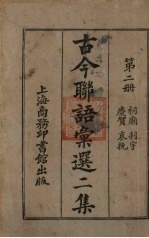 第二冊
祠廟 刹宇
慶賀 哀挽
古今聯語彙選二集
上海商務印書館出版